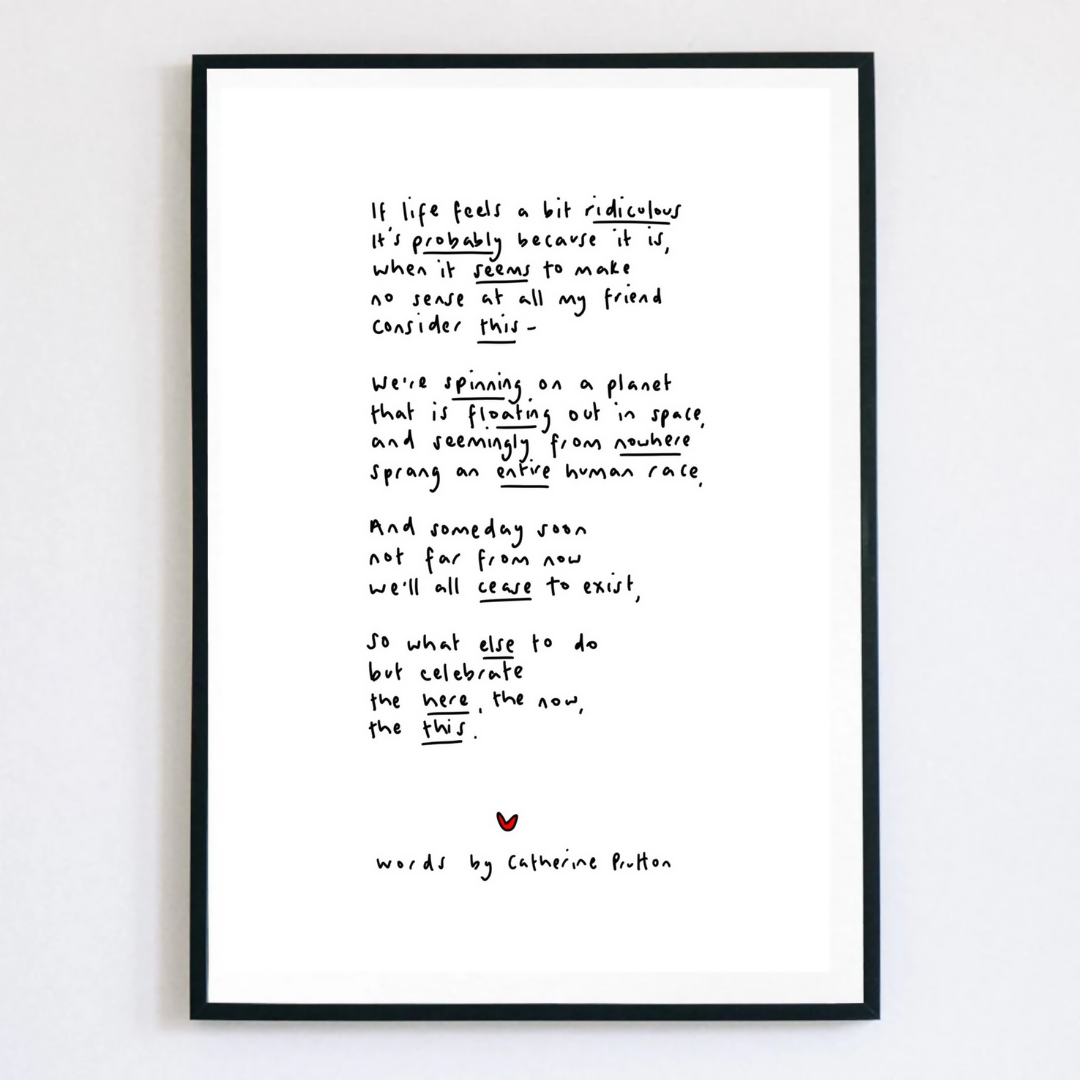 If life feels a bit ridiculous
It's probably because it is,
when it seems to make
no sense at all my friend
consider this-
We're spinning on a planet
that is floating out in space,
and seemingly from nowhere
sprang an entire human race,
And someday soon
not far from now
we'll all cease to exist,
So what else to do
but celebrate
the here, the now,
the this.
words by Catherine Prutton